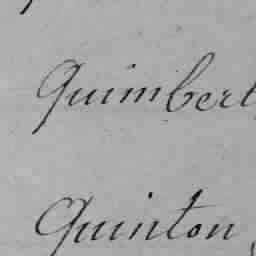 Quimbert
Quinton